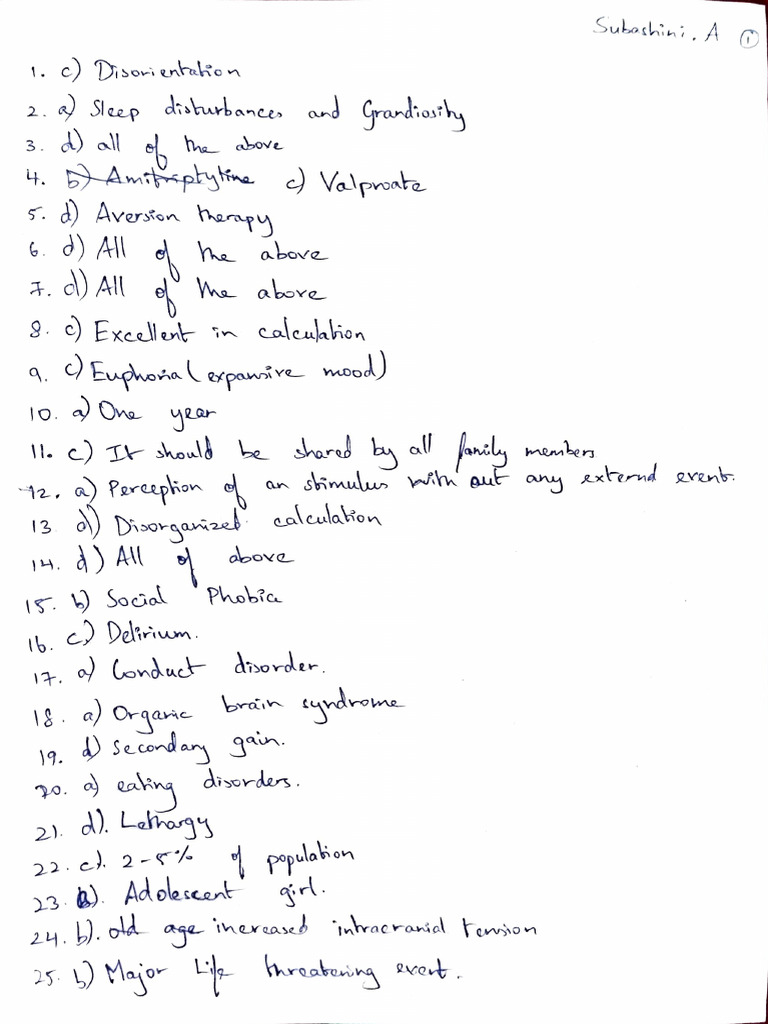 Subashini. A 1
1. c) Disorientation
2. a) Sleep disturbances and Grandiosity
3. d) all of the above
4. b) Amitriptyline c) Valproate
5. d) Aversion therapy
6. d) All of the above
7. d) All of the above
8. c) Excellent in calculation
9. c) Euphoria (expansive mood)
10. a) One year
11. c) It should be shared by all family members
12. a) Perception of an stimulus with out any external event.
13 d) Disorganized calculation
14. d) All of above
15. b) Social Phobia
16. c) Delirium.
17. a) Conduct disorder.
18. a) Organic brain syndrome
19. d) Secondary gain.
20. a) eating disorders.
21. d). Lethargy
22. c). 2-5% of population
23. a). Adolescent girl.
24. b). old age increased intracranial tension
25. b) Major Life threatening event.